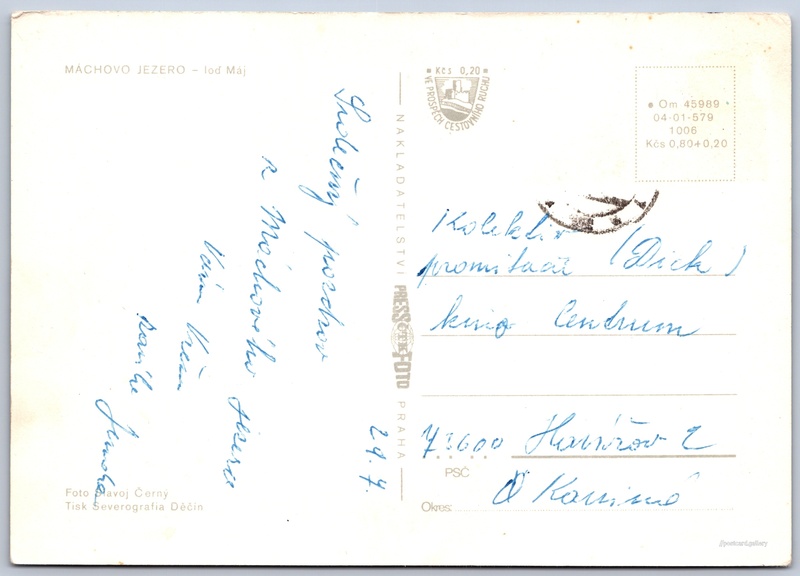 MÁCHOVO JEZERO – loď Máj
Srdečný pozdrav
z Máchového jezera
Vám všem
Foto Slavoj Černý
Tisk Severografia Děčín
NAKLADATELSTVÍ PRESSFOTO PRAHA
Kčs 0,20
VE PROSPĚCH CESTOVNÍHO RUCHU
Om 45989
04-01-579
1006
Kčs 0,80+0,20
Kolektiv
promítačů (Dick)
kino Centrum
73600 Havířov 2
PSČ
O Karviná
Okres: